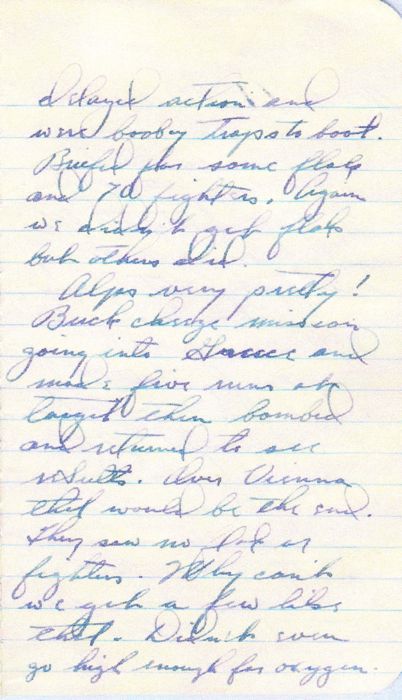 delayed action and
were booby traps to boot.
Briefed for some flak
and 70 fighters. Again
we didn't get flak
but others did.
Alps very pretty!
Buck charge mission
going into Greece and
made five runs at
target then bombed
and returned to see
results. Over Vienna
that would be the end.
They saw no flak or
fighters. Why can't
we get a few like
that. Didn't even
go high enough for oxygen.